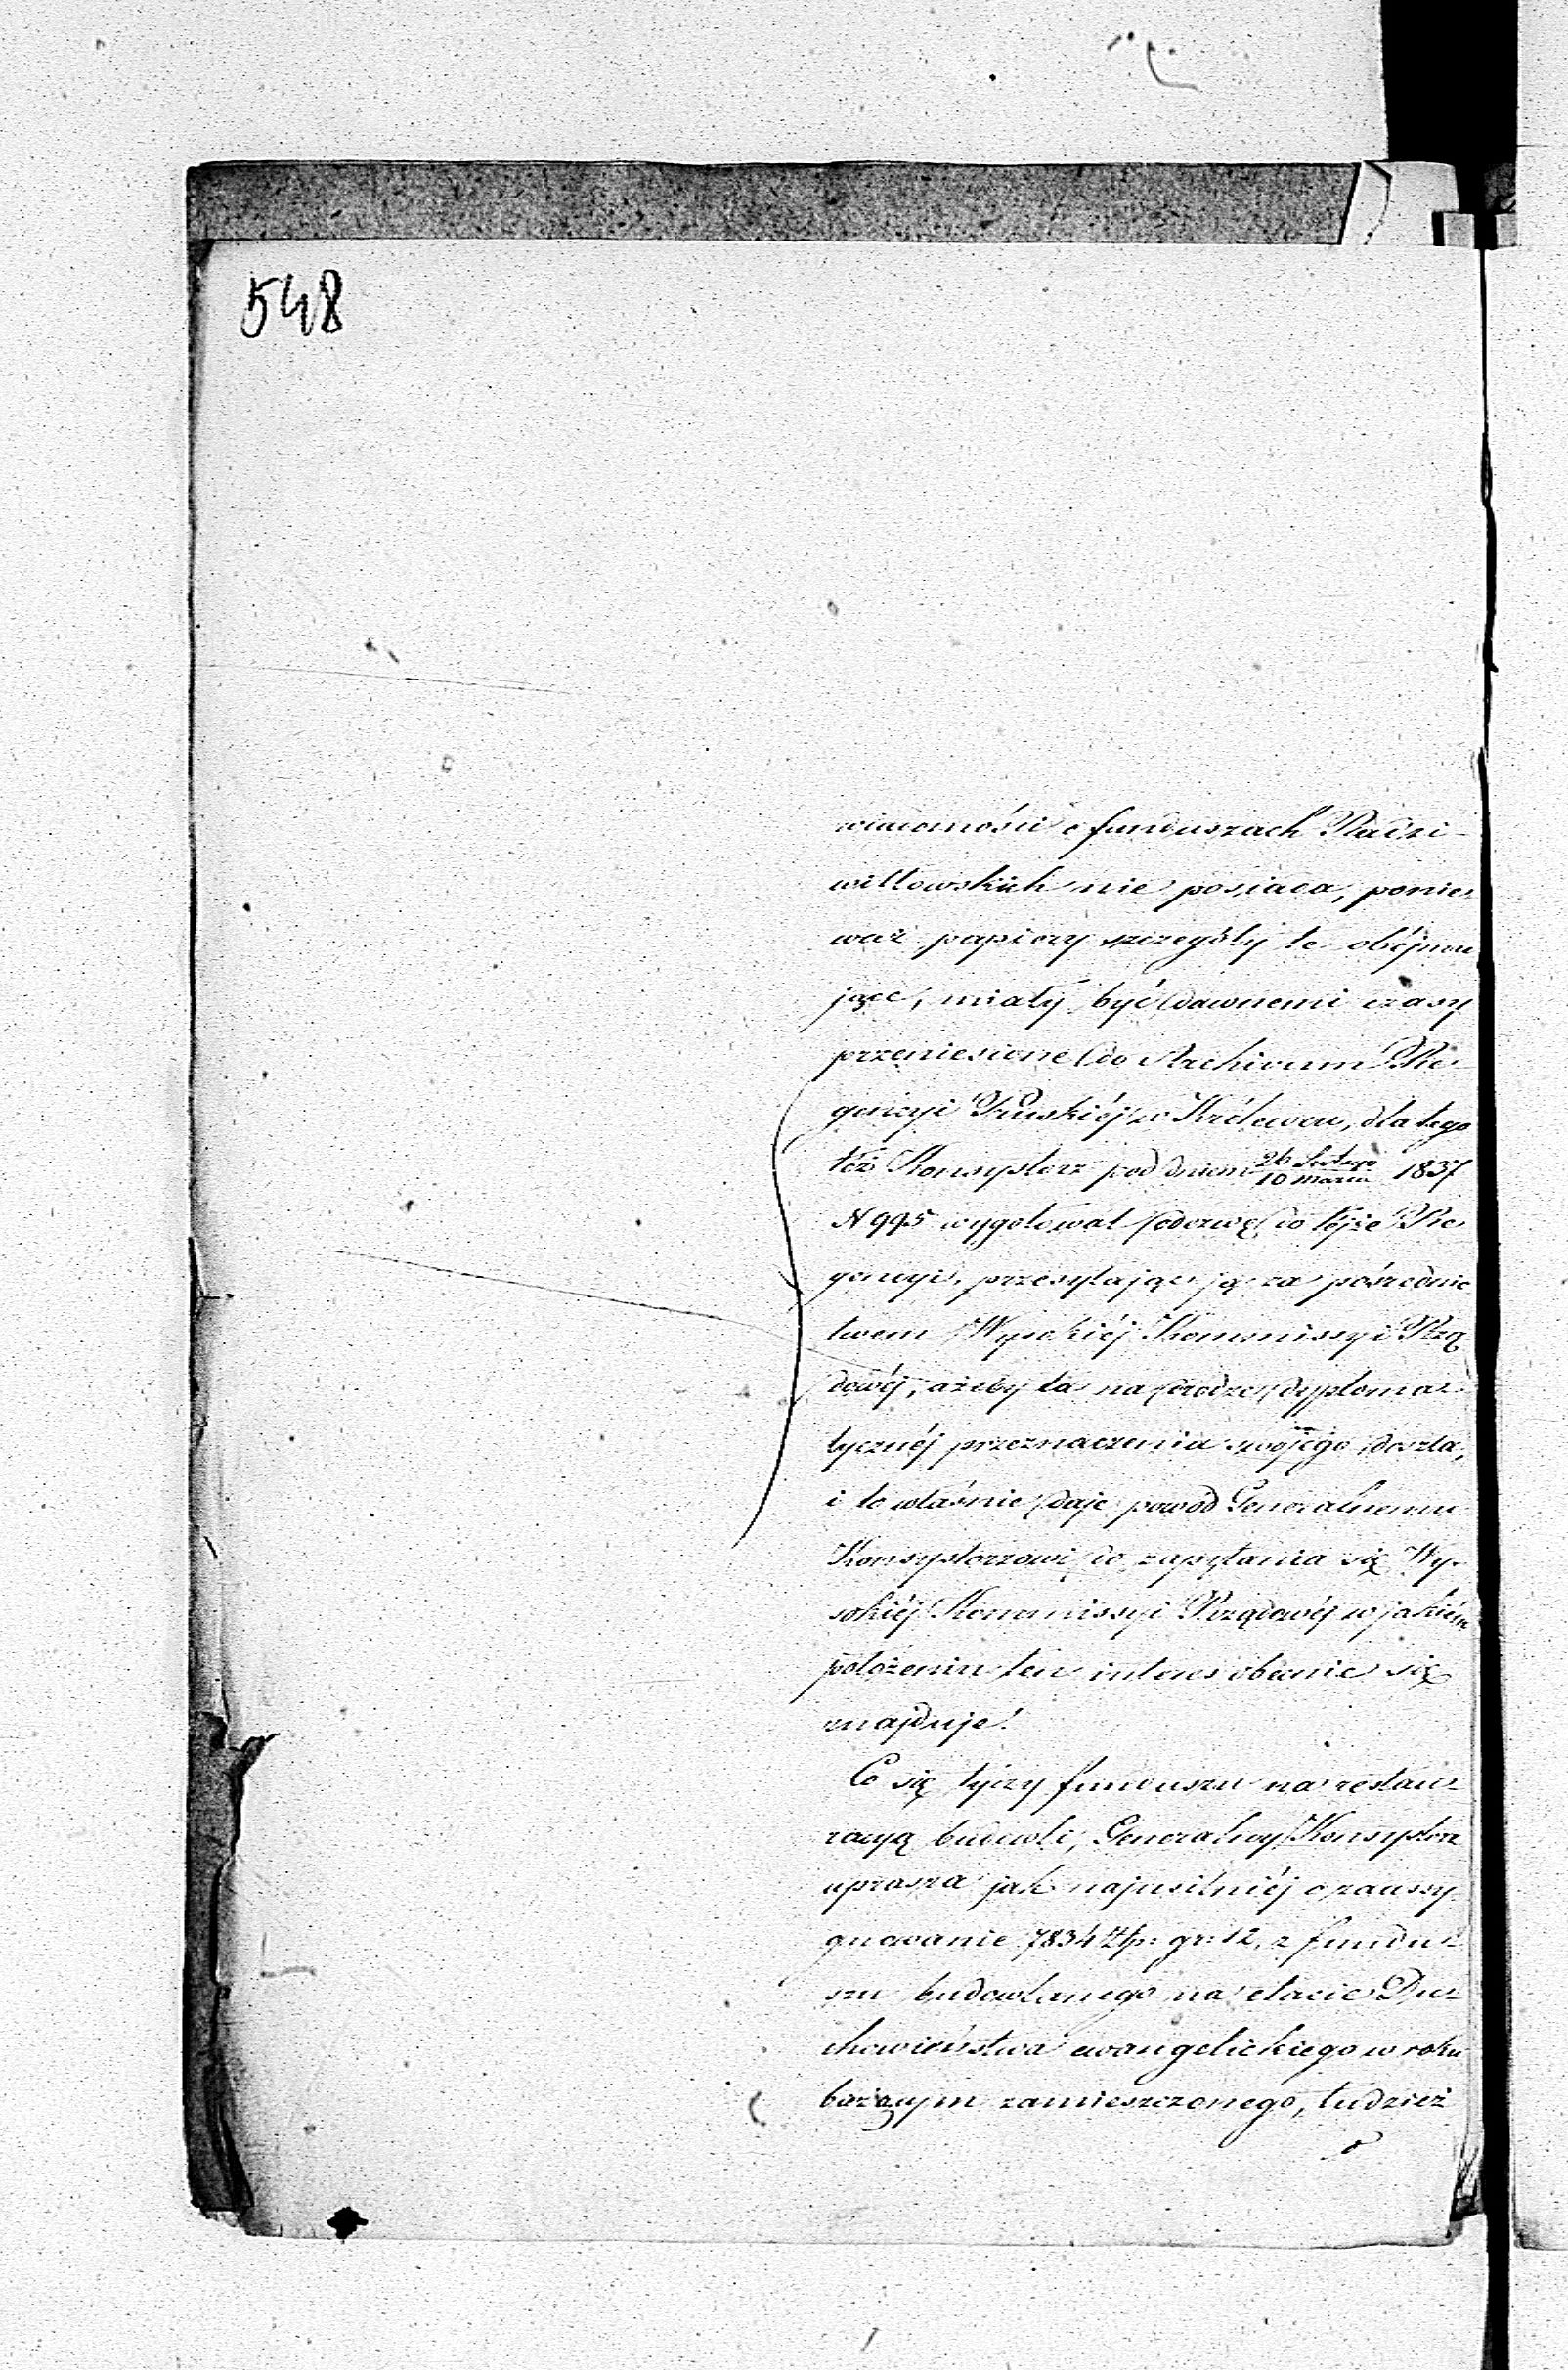 548
wiadomości o funduszach Radzi-
wiłłowskich nie posiada, ponie-
waż papiery szczegóły te obéjmu
jące, miały być dawnemi czasy
przeniesione do Archivum Re-
gencyi Pruskiéj w Królewcu, dla tego
też Konsystorz pod dniem 26 Lutego / 10 Marca 1837
N 995 wygotował odezwę do téjże Re
gencyi, przesyłając ją za pośrednic
twem Wysokiéj Kommissyi Rzą
dowéj, ażeby ta na drodze dyploma-
tycznéj przeznaczenia swojego doszła,
i to właśnie daje powód Generalnemu
Konsystorzowi do zapytania się Wy-
sokiéj Kommissyi Rządowéj w jakiém
położeniu ten interes obecnie się
znajduje!
Co się tyczy funduszu na restau-
racyą budowli, Generalny Konsystorz
uprasza jak najusilniéj o zaassy
gnowanie 7834 Złp: gr: 12, z fundu-
szu budowlanego na etacie Du-
chowieństwa ewangelickiego w roku
bieżącym zamieszczonego, tudzież
o